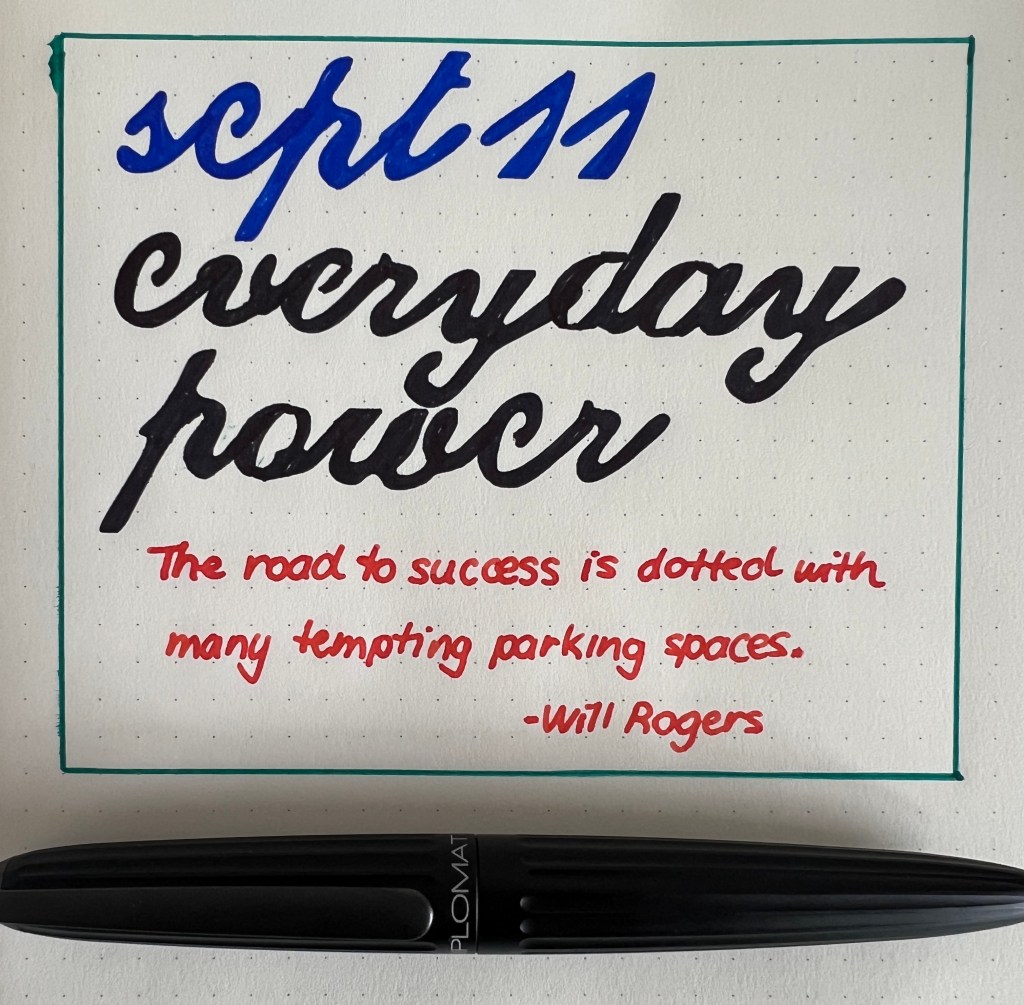 sept 11
everyday
power
The road to success is dotted with
many tempting parking spaces.
-Will Rogers
PLOMAT